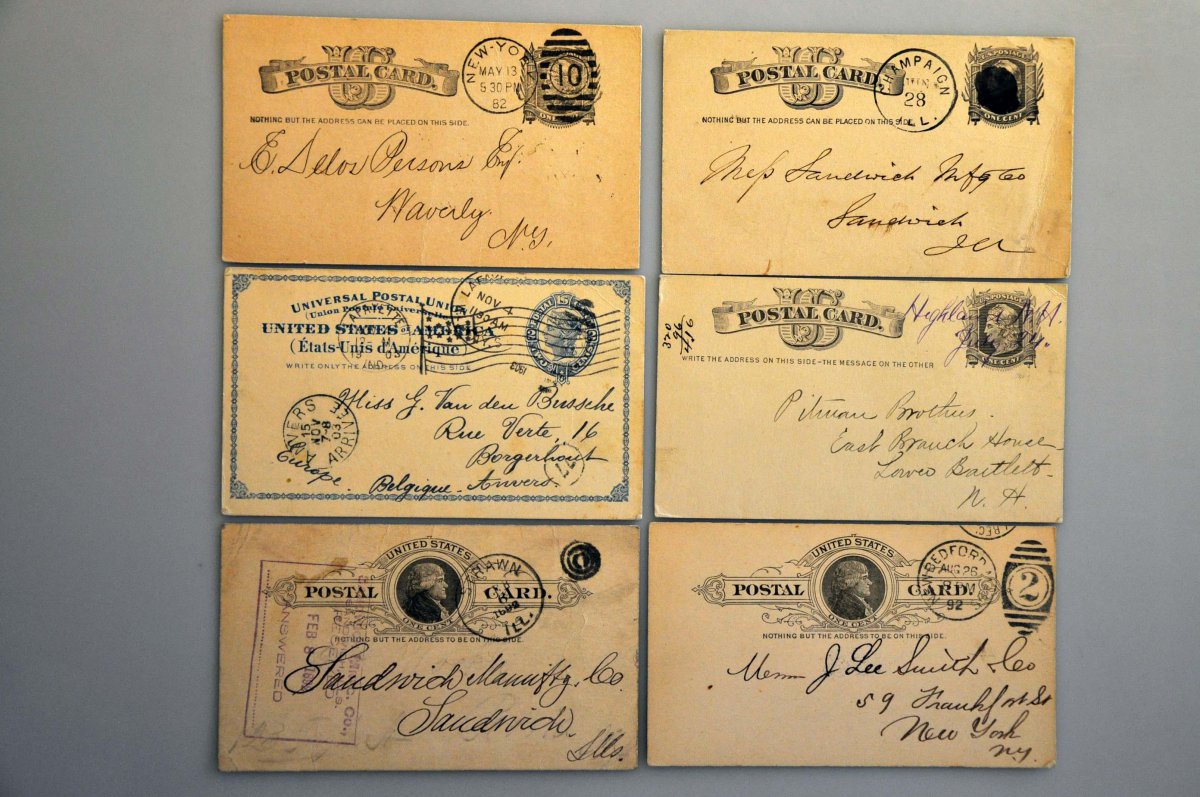 POSTAL CARD.
NEW-YORK
MAY 13
9 30 PM
82
10
ONE CENT
NOTHING BUT THE ADDRESS CAN BE PLACED ON THIS SIDE.
E. Delos Persons Esq.
Waverly
N.Y.
POSTAL CARD.
CHAMPAIGN
28
ILL.
U.S. POSTAGE
ONE CENT
NOTHING BUT THE ADDRESS CAN BE PLACED ON THIS SIDE.
Mess Sandwich Mfg Co
Sandwich
Ill
UNIVERSAL POSTAL UNION
(Union Postale Universelle)
UNITED STATES OF AMERICA
(États-Unis d'Amérique)
WRITE ONLY THE ADDRESS ON THIS SIDE
LAFAYETTE
NOV 4
IND.
1903
ANVERS
15
NOV
7-8
03
ARRIVEE
Miss G. Van den Bussche
Rue Verte, 16
Borgerhout
Europe. Belgique. Anvers.
POSTAL CARD.
U.S. POSTAGE
ONE CENT
WRITE THE ADDRESS ON THIS SIDE—THE MESSAGE ON THE OTHER
320
96
416
Highland
Pitman Brothers.
East Branch House
Lower Bartlett
N. H.
UNITED STATES
POSTAL CARD.
ONE CENT
NOTHING BUT THE ADDRESS TO BE ON THIS SIDE.
ILL.
Co.,
FEB 8
ANSWERED
Sandwich Manuftg. Co.
Sandwich,
Ills.
UNITED STATES
POSTAL CARD.
ONE CENT
REC'
NEW BEDFORD
AUG 26
92
2
NOTHING BUT THE ADDRESS TO BE ON THIS SIDE.
Messrs J Lee Smith & Co
59 Frankfort St
New York
N.Y.